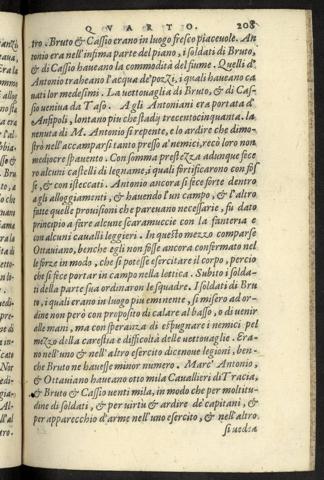 QVARTO. 208
tro. Bruto & Cassio erano in luogo fresco piaceuole. An
tonio era nell'infima parte del piano, i soldati di Bruto,
& di Cassio haueano la commodità del fiume. Quelli d'
Antonio traheano l'acqua de'pozzi, i quali haueano ca
uati lor medesimi. La uettouaglia di Bruto, & di Cas-
sio ueniua da Taso. A gli Antoniani era portata d'
Anfipoli, lontano piu che stadij trecentocinquanta. la
uenuta di M. Antonio sì repente, e lo ardire che dimo-
strò nell'accamparsi tanto presso a' nemici, recò loro non
mediocre spauento. Con somma prestezza adunque fece
ro alcuni castelli di legname, i quali fortificarono con fos
se, & con isteccati. Antonio ancora si fece forte dentro
agli alloggiamenti, & hauendo l'un campo, & l'altro
fatte quelle prouisioni che pareuano necessarie, fu dato
principio a fare alcune scaramuccie con la fanteria e
con alcuni caualli leggieri. In questo mezzo comparse
Ottauiano, benche egli non fosse ancora confermato nel
le forze in modo, che si potesse esercitare il corpo, percio
che si fece portar in campo nella lottica. Subito i solda-
ti della parte sua ordinaron le squadre. I soldati di Bru
to, i quali erano in luogo piu eminente, si misero ad or-
dine non però con proposito di calare al basso, o di uenir
alle mani, ma con speranza di espugnar i nemici pel
mezzo della carestia e difficoltà delle uettouaglie. Era-
no nell'uno & nell'altro esercito dicenoue legioni, ben-
che Bruto ne hauesse minor numero. Marc' Antonio,
& Ottauiano haueano otto mila Cauallieri di Tracia,
& Bruto & Cassio uenti mila, in modo che per moltitu-
dine di soldati, & per uirtù & ardire de'capitani, &
per apparecchio d'arme nell'uno esercito, & nell'altro
si uedea